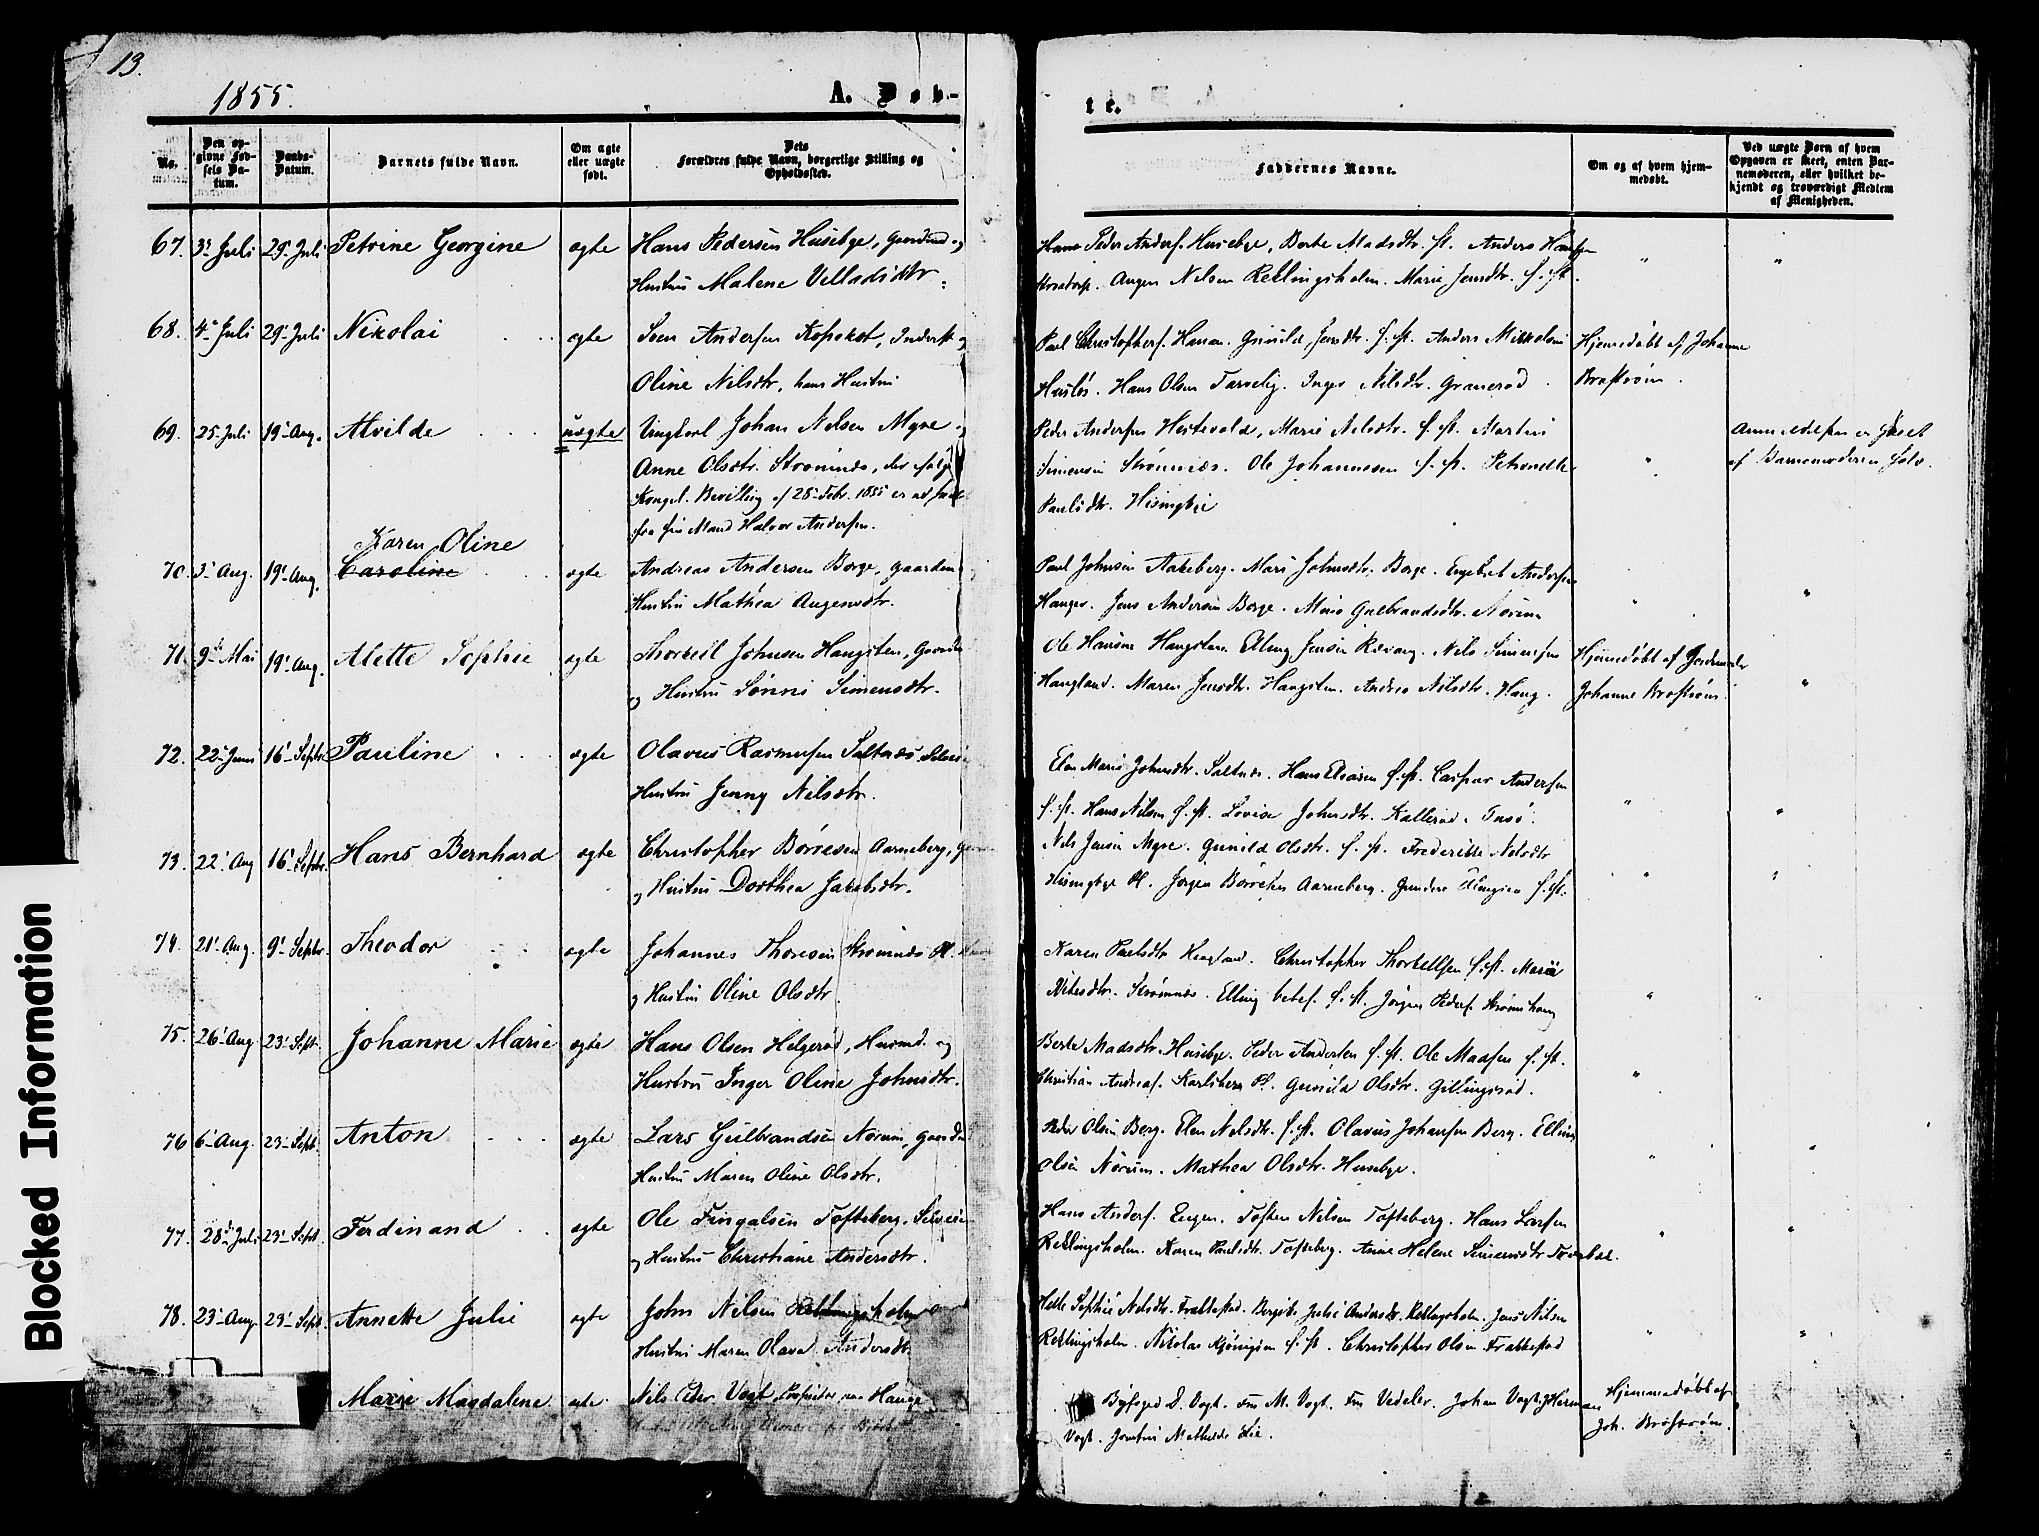 13.
1855.
A. Døb-
te.
No.
Den op-
givne Fød-
sels Da-
tum.
Daabs-
Datum.
Barnets fulde Navn.
Om ægte
eller uægte
født.
Dets
Forældres fulde Navn, borgerlige Stilling og
Opholdssted.
Faddernes Navne.
Om og af hvem hjem-
medøbt.
Ved uægte Børn af hvem
Opgaven er skeet, enten Bar-
nemoderen, eller hvilket be-
kjendt og troværdigt Medlem
af Menigheden.
67. 3' Juli 29' Juli Petrine Georgine ægte Hans Pedersen Husebye, Gaardmd og
Hustru Malene Velladsdtr.
Hans Peder Anders. Husebye, Berte Madsdtr. s. st. Anders Hansen
Augen Nilsen Rellingsholm. Marie Jensdtr. s. st.
68. 4' Juli 29' Juli Nikolai ægte Andersen Kopskot, Inderst og
Oline Nilsdtr, hans Hustru
Paul Christophers. Hanan. Gunild Jensdtr. s. st. Anders Mikkelsen
Huslós. Hans Olsen Tarvelig. Inger Nilsdtr. Granerød.
Hjemmedøbt af Johanne
Brostrøm.
69. 25' Juli 19' Aug. Alvilde uægte Ungkarl Johan Nilsen Myre og
Anne Olsdtr. Strømnes, der ifølge
Kongel. Bevilling af 28' Febr. 1855 er
fra sin Mand Halvor Andersen.
Peder Andersen Hestevold, Marie Nilsdtr. s. st. Martin
Simensen Strømnæs. Ole Johannesen s. st. Petronelle
Paulsdtr. Hisingbye
Anmeldelsen er skeet
af Barnemoderen selv.
Karen Oline
70. 3' Aug. 19' Aug. Caroline ægte Andreas Andersen Borge, Gaardmd
Hustru Mathea Augensdtr.
Paul Johnsen Aakeberg. Mari Johnsdtr. Borge. Engebret Andersen
Hauger. Jens Andersen Borge. Marie Gulbrandsdtr. Norum
71. 9de Mai 19' Aug. Alette Sophie ægte Thorkell Johnsen Haugsten, Gaardm
og Hustru Sønni Simensdtr.
Ole Hansen Haugsten. Elling Jensen Nils Simensen
Haugland. Maren Jensdtr. Haugsten. Andrea Nilsdtr. Haug.
Hjemmedøbt af Jordemoder
Johanne Brostrøm.
72. 22' Juni 16' Septr. Pauline ægte Olavus Rasmussen Saltnæs
Hustru Jenny Nilsdtr.
Elen Marie Johnsdtr. Saltnes. Hans Eliasen s. st. Caspar Andersen
s. st. Hans Nilsen s. st. Lovise Johnsdtr. Kallerød.
73. 22' Aug 16' Septr. Hans Bernhard ægte Christopher Börresen Aarneberg,
og Hustru Dorthea Jakobsdtr.
Nils Jensen Myre. Gunild Olsdtr. s. st. Frederikke Nilsdtr
Hisingbye Pl. Jørgen Børresen Aarneberg. Gundere Ellingsen s. st.
74. 21' Aug. 9' Septbr. Theodor ægte Johannes Thoresen Strømnes Pl.
og Hustru Oline Olsdtr
Karen Paulsdtr Haugland. Christopher Thorkellsen s. st. Marie
Nilsdtr. Strømnes. Elling s. st. Jørgen Peders. Strømshaug
75. 26' Aug 23' Sept. Johanne Marie ægte Hans Olsen Helgerød, Husmd. og
Hustru Inger Oline Johnsdtr.
Berte Madsdtr. Husebye. Peder Andersen s. st. Ole Madsen s. st.
Christian Andreas. Karlsberg Pl. Gunild Olsdtr. Gillingsrød.
76 6' Aug. 23' Sept. Anton ægte Lars Gulbrandsen Norum, Gaardm
Hustru Maren Oline Olsdtr.
Peder Olsen Berg. Elen Nilsdtr. s. st. Olavus Johansen Berg. Elling
Olsen Norum. Mathea Olsdtr. Husebye.
77. 28' Juli 23' Sept. Ferdinand ægte Ole Fingalsen Tofteberg.
og Hustru Christiane Andersdtr.
Hans Anders. Engen. Tosten Nilsen Tofteberg. Hans Larsen
Rellingsholm. Karen Paulsdtr. Tofteberg. Anne Helene Simensdtr
78. 23' Aug. 23' Sept. Annette Julie ægte John Nilsen Rellingsholm
Hustru Maren Olava Andersdtr
Helle Sophie Nilsdtr. Frakkestad. Bergite Julie Andersdtr. Rellingsholm. Jens Nilsen
Rellingsholm. Nikolai s. st. Christopher Olsen Frakkestad
Marie Magdalene ægte Nils Peter Vogt
D. Vogt. Fru M. Vogt. Fru Vedeler. Johan Vogt. Herman
Vogt. Jomfru Mathilde Lie.
Hjemmedøbt af
Joh. Brostrøm.
Blocked Information